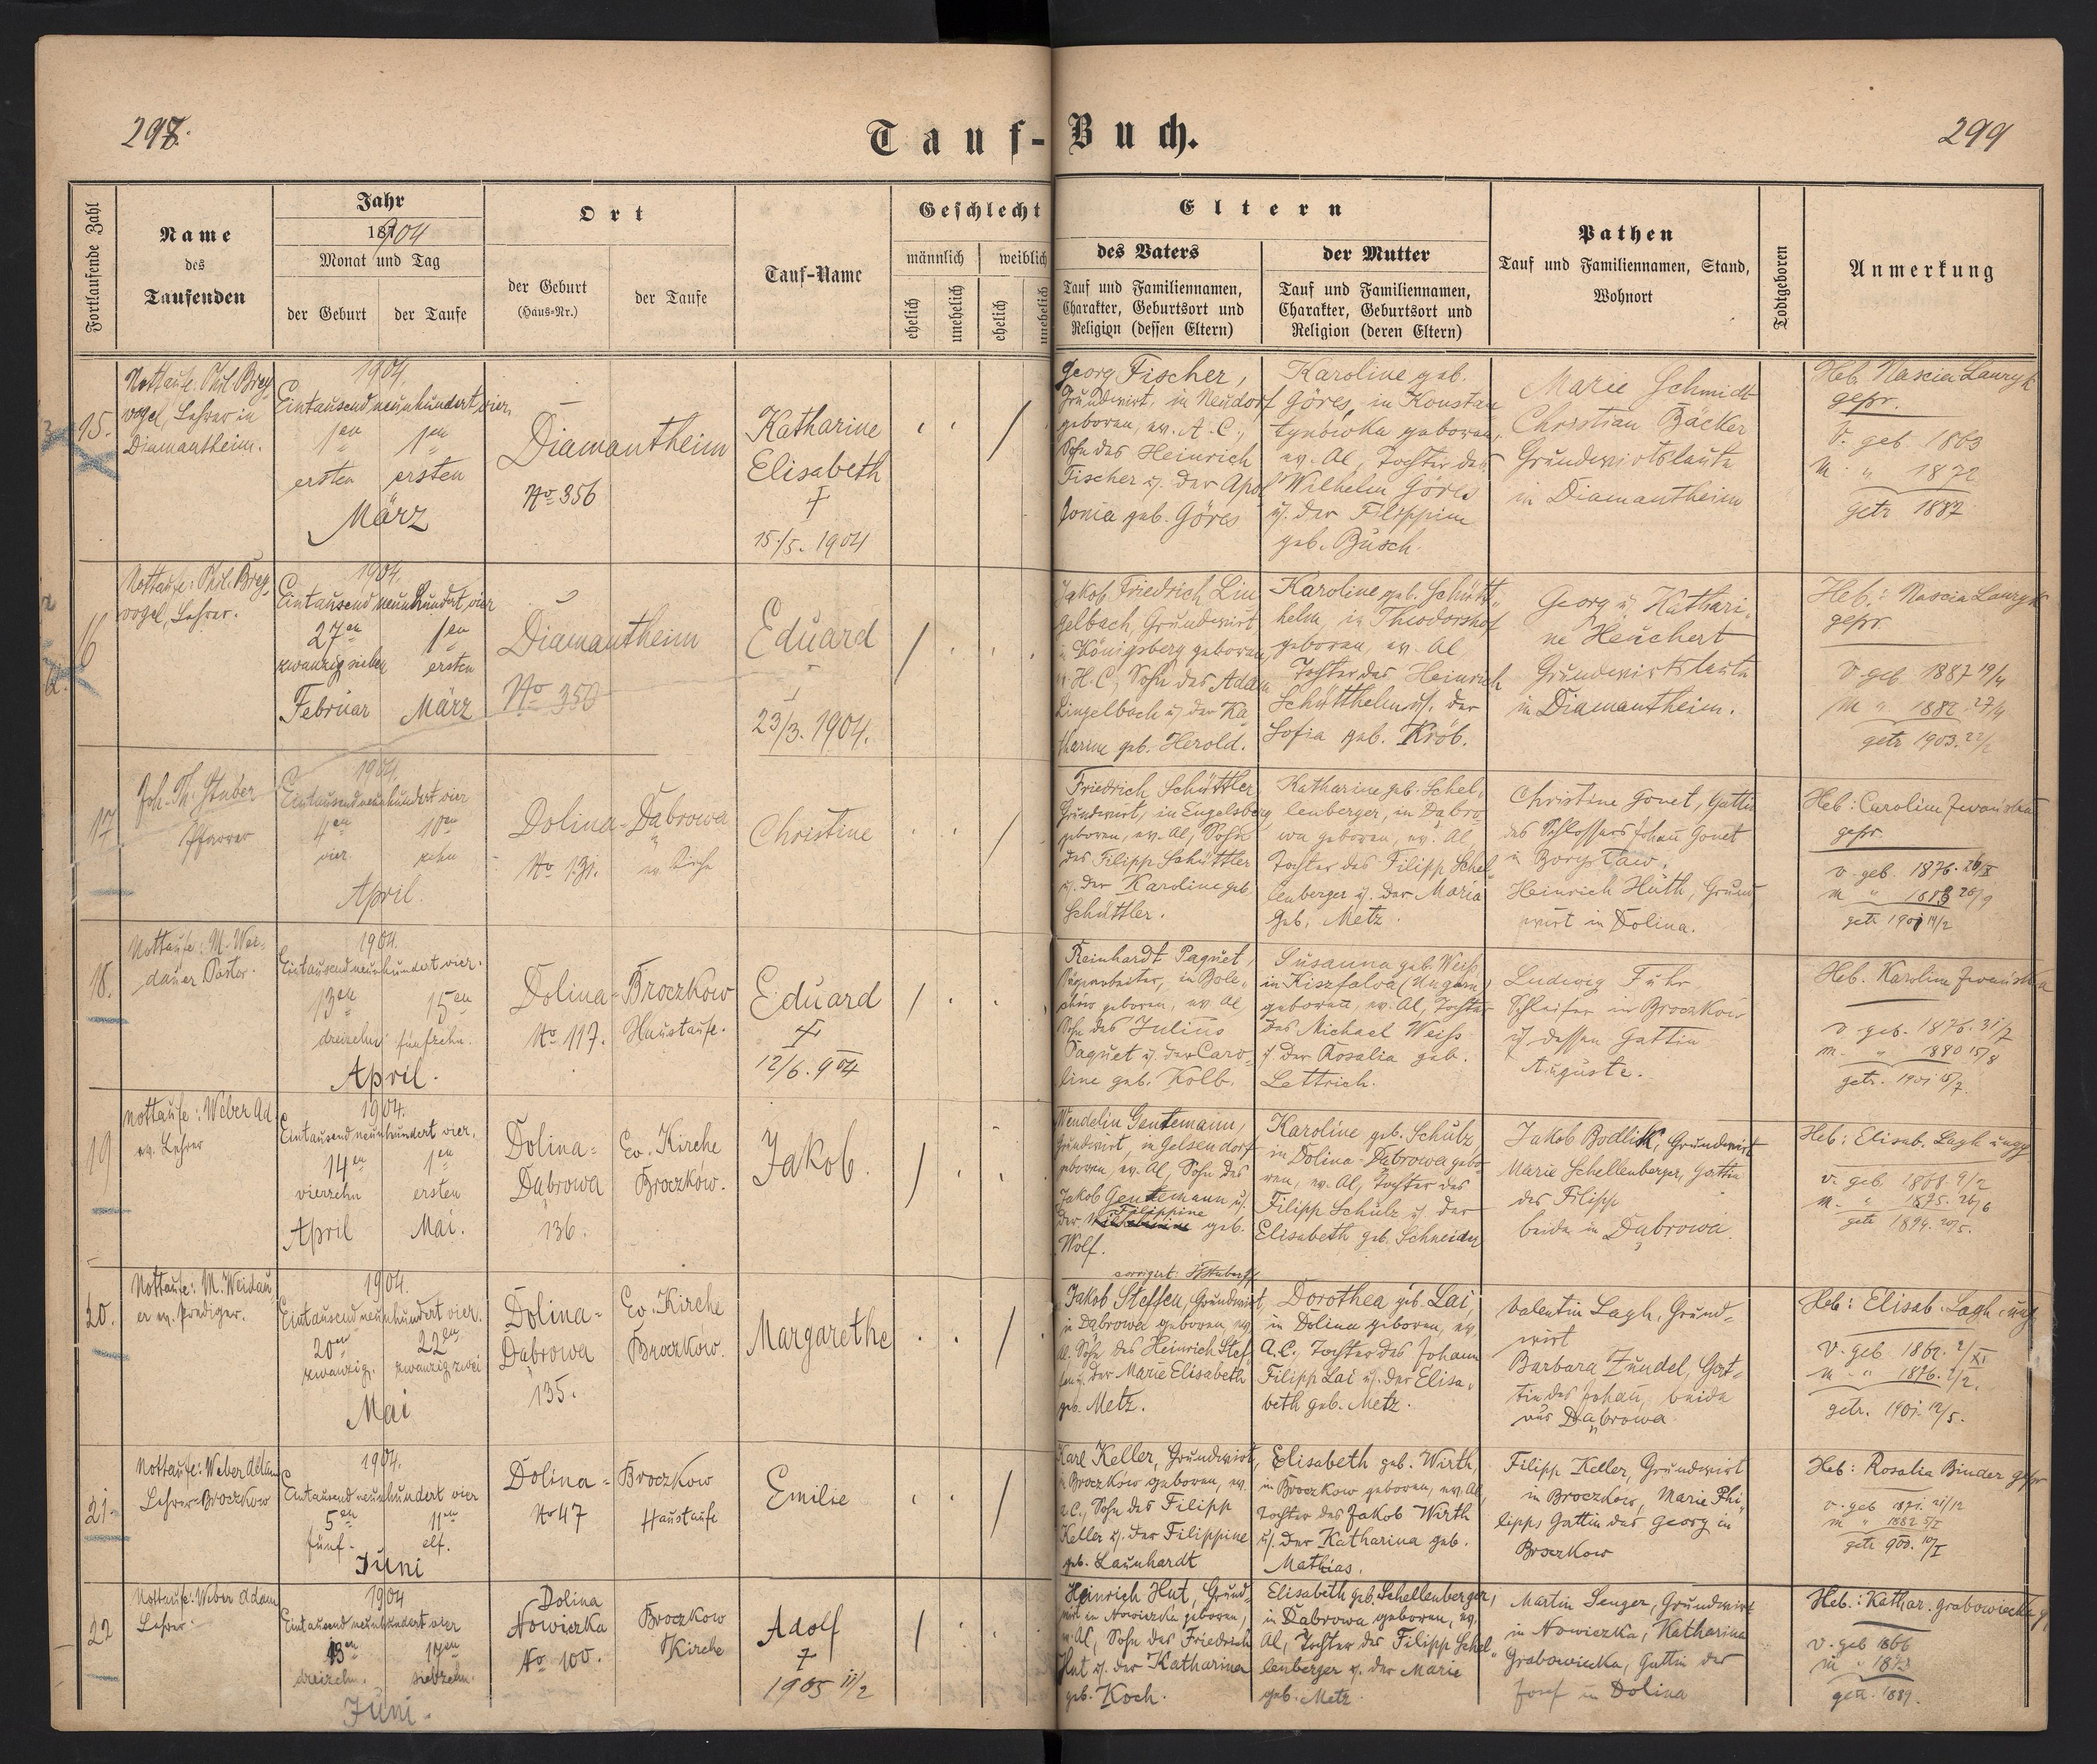 298.
Tauf-Buch.
299
Fortlaufende Zahl
Name
des
Taufenden
Jahr
1904
Monat und Tag
der Geburt
der Taufe
Ort
der Geburt
(Haus-Nr.)
der Taufe
Tauf-Name
Geschlecht
männlich
weiblich
ehelich
unehelich
ehelich
unehelich
Eltern
des Vaters
Tauf und Familiennamen,
Charakter, Geburtsort und
Religion (dessen Eltern)
der Mutter
Tauf und Familiennamen,
Charakter, Geburtsort und
Religion (deren Eltern)
Pathen
Tauf und Familiennamen, Stand,
Wohnort
Todtgeboren
Anmerkung
15.
Nottaufe: Phil. Brey
vogel, Lehrer in
Diamantheim.
1904.
Eintausend neunhundert vier.
1en 1en
ersten ersten
März
Diamantheim
No 356
Katharine
Elisabeth
†
15./5. 1904
Georg Fischer,
Grundwirt, in Neudorf
geboren, ev. A. C.,
Sohn des Heinrich
Fischer u. der Apol
lonia geb. Göres
Karoline geb.
Göres, in Konstan
tynówka geboren,
ev. Al, Tochter des
Wilhelm Göres
u. der Filippine
geb. Busch.
Marie Schmidt
Christian Bäcker
Grundwirtsleute
in Diamantheim
Heb. Nascia Lauryk
gepr.
V. geb. 1863
M. " 1872
getr 1887
16
Nottaufe: Phil. Brey
vogel, Lehrer.
1904.
Eintausend neunhundert vier
27en 1en
zwanzig sieben ersten
Februar März
Diamantheim
No 350
Eduard
†
23/3. 1904.
Jakob Friedrich Lin
gelbach, Grundwirt
in Königsberg geboren,
H. C, Sohn des Adam
Lingelbach u. der Ka
tharine geb. Herold.
Karoline geb. Schütt
helm, in Theodorshof
geboren, ev. Al,
Tochter des Heinrich
Schütthelm u. der
Sofia geb. Kröb.
Georg u. Kathari
ne Heuchert
Grundwirtsleute
in Diamantheim.
Heb.: Nascia Lauryk
gepr.
V. geb. 1887 19/4
M " 1882. 27/4
getr 1903. 22/2
17
Joh. Th. Stuber
Pfarrer
1904.
Eintausend neunhundert vier
4en 10en
vier zehn
April.
Dolina-Dąbrowa
No 131. ev. Kirche
Christine
Friedrich Schüttler,
Grundwirt, in Engelsberg
geboren, ev. Al, Sohn
des Filipp Schüttler
u. der Karoline geb.
Schüttler.
Katharine geb. Schel
lenberger, in Dąbro
wa geboren, ev. Al,
Tochter des Filipp Schel
lenberger u. der Maria
geb. Metz.
Christine Gonet, Gattin
des Schlossers Johan Gonet
in Borysław.
Heinrich Huth, Grund
wirt in Dolina.
Heb: Caroline Iwańska
gepr.
v. geb. 1876. 26/X
getr 1901 19/2
18.
Nottaufe: M. Wei-
dauer Pastor.
1904.
Eintausend neunhundert vier.
13en 15en
dreizehn fünfzehn.
April.
Dolina-Broczkow
No 117. Haustaufe.
Eduard
†
12/6. 904
Reinhardt Paquet,
Sägearbeiter, in Bole-
chów geboren, ev. Al
Sohn des Julius
Paquet u. der Caro-
line geb. Kolb.
Susanna geb. Weiss,
in Kiszfalva (Ungarn)
geboren, ev. Al, Tochter
des Michael Weiss
u. der Rosalia geb.
Lettrich.
Ludwig Fuhr
Schleifer in Broczków
u. dessen Gattin
Auguste.
Heb. Karoline Iwańska
v. geb. 1876. 31/7
m. " 1880 15/8
getr. 1901 15/7.
19
Nottaufe: Weber Ad.
ev. Lehrer
1904.
Eintausend neunhundert vier.
14en 1en
vierzehn ersten
April Mai.
Dolina-
Dąbrowa
136.
Ev. Kirche
Broczków.
Jakob.
Wendelin Gentemann,
Grundwirt, in Gelsendorf
geboren, ev. Al, Sohn des
Jakob Gentemann u.
der Filippine geb.
Wolf.
corrigirt: Stuber
Karoline geb. Schulz
in Dolina-Dąbrowa gebo
ren, ev. Al, Tochter des
Filipp Schulz u. der
Elisabeth geb. Schneider
Jakob Bodlik, Grundwirt
Marie Schellenberger, Gattin
des Filipp
beide in Dąbrowa.
Heb: Elisab. Lagh ungp
v. geb. 1868 9/2
m. " 1875. 26/6
getr 1894. 20/5.
20.
Nottaufe: M. Weidau
er ev. Prediger.
1904.
Eintausend neunhundert vier.
20en 22en
zwanzig. zwanzig zwei
Mai
Dolina-
Dąbrowa
135.
Ev. Kirche
Broczków.
Margarethe
Jakob Steffen, Grundwirt,
in Dąbrowa geboren, ev.
Al. Sohn des Heinrich Stef
fen u. der Marie Elisabeth
geb. Metz.
Dorothea geb. Lai,
in Dolina geboren, ev.
A.C. Tochter des Johann
Filipp Lai u. der Elisa-
beth geb. Metz.
Valentin Lagh, Grund-
wirt
Barbara Zundel, Gat-
tin des Johan, beide
aus Dąbrowa.
Heb: Elisab. Lagh, ung
V. geb. 1869. 2/XI
M " 1876. 2/2.
getr. 1901. 12/5.
21.
Nottaufe: Weber Adam
Lehrer-Broczkow
1904.
Eintausend neunhundert vier
5en 11en
fünf. elf.
Juni
Dolina-Broczkow
No 47 Haustaufe
Emilie
Karl Keller, Grundwirt,
in Broczkow geboren, ev.
A.C., Sohn des Filipp
Keller u. der Filippine
geb. Launhardt
Elisabeth geb. Wirth,
in Broczkow geboren, ev. Al,
Tochter des Jakob Wirth
u. der Katharina geb.
Mathias.
Filipp Keller, Grundwirt
in Broczkow, Marie Phi
lipps Gattin des Georg in
Broczkow
Heb: Rosalia Binder gepr
v. geb 1871. 21/12
m " 1882 5/I
getr 900. 10/I
22
Nottaufe: Weber Adam
Lehrer
1904
Eintausend neunhundert vier
13en 17en
dreizehn. siebzehn.
Juni.
Dolina
Nowiczka
No 100.
Broczkow
Kirche
Adolf
†
1905 11/2
Heinrich Hut, Grund-
wirt in Nowiczka geboren,
ev. Al, Sohn des Friedrich
Hut u. der Katharina
geb. Koch.
Elisabeth geb. Schellenberger,
in Dąbrowa geboren, ev.
Al, Tochter des Filipp Schel
lenberger u. der Marie
geb. Metz.
Martin Senger, Grundwirt
in Nowiczka, Katharina
Grabowiecka, Gattin des
Josef in Dolina
Heb.: Kathar. Grabowiecka g,
v. geb 1866
m " 1873
getr. 1889.